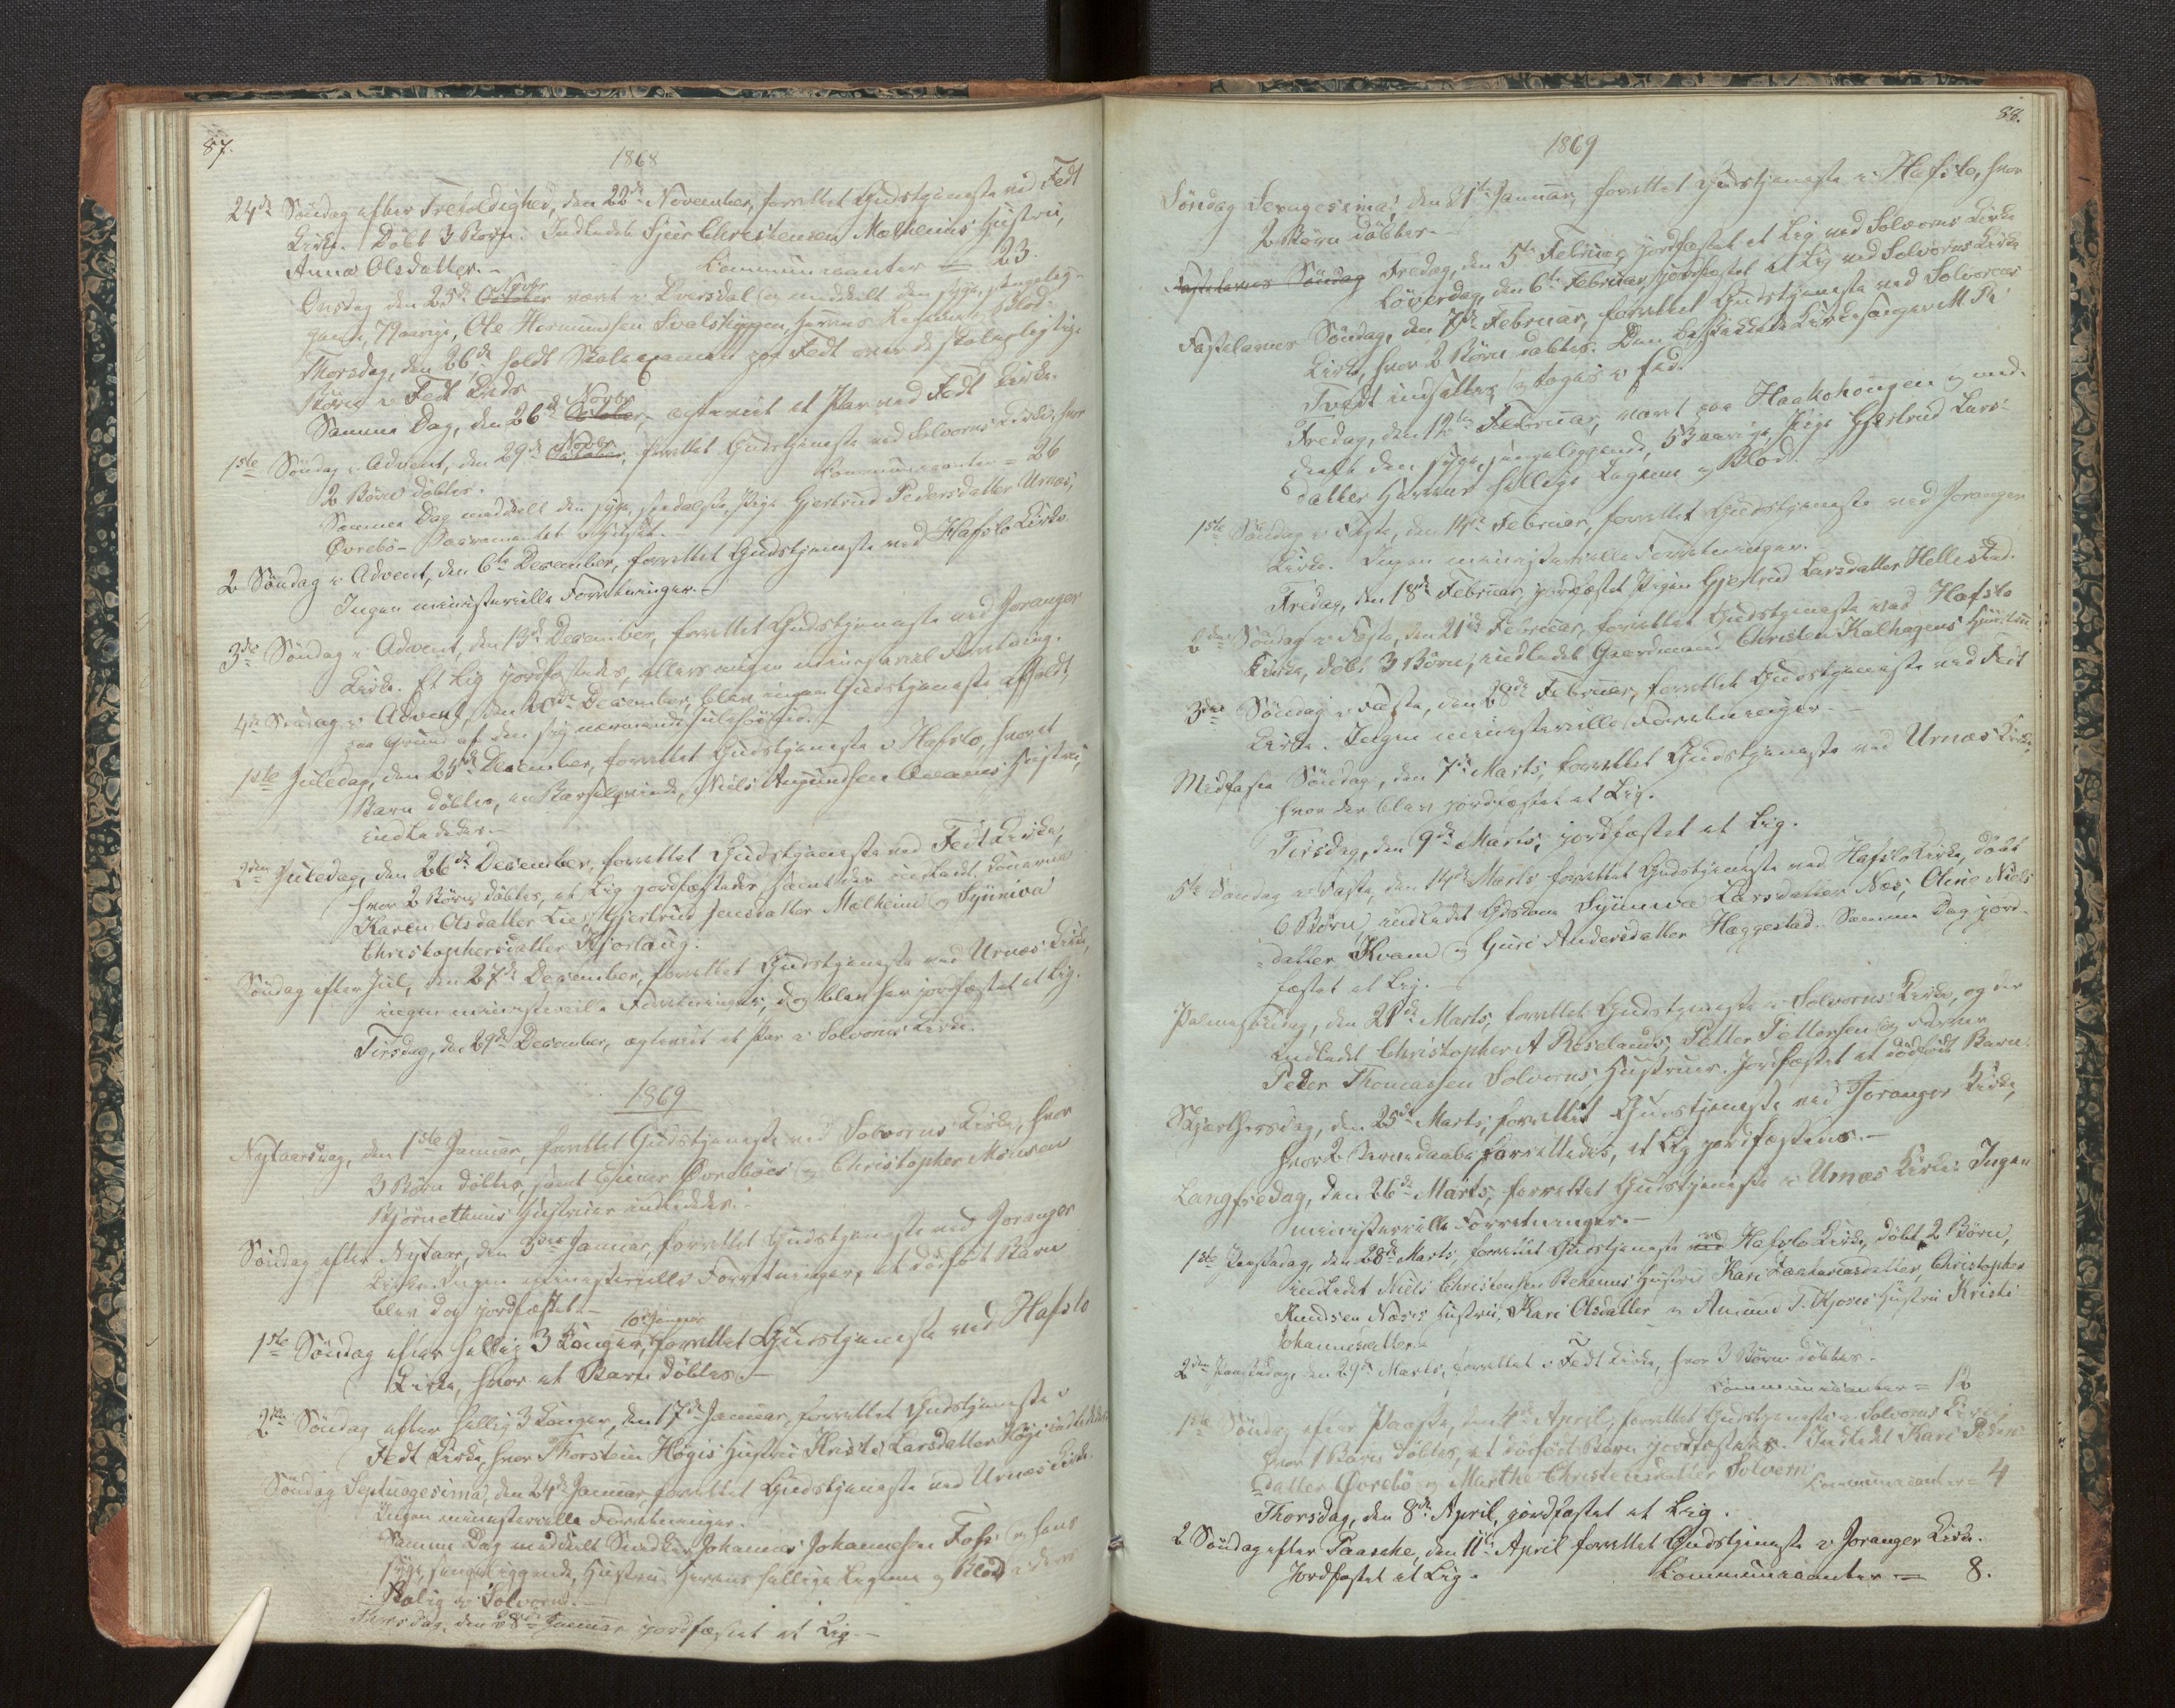 87.
1868
24de Søndag efter Trefoldighed, den 22de November, forrettet Gudstjeneste ved Fedt
Kirke. Døbt 3 Børn. Indledet Sjur Christensen Molheims Hustru,
Anna Olsdatter.-
Communicanter = 23.
Onsdag den 25de October Novbr været i Kversdal og meddelt den syge, sengelig-
gende, 79aarige, Ole Hermundsen Svalestuggen, Herrens Legeme og Blod.
Thorsdag, den 26de holdt Skoleexamen paa Fedt over de skolepligtige
Børn i Fedt Kreds
Samme Dag, den 26de October Novbr, egteviet et Par ved Fedt Kirke.
1ste Søndag i Advent, den 29de October Novbr, forrettet Gudstjeneste ved Solvorns Kirke, hvor
2 Børn døbtes.
Communicanter = 26
Samme Dag meddelt den syge, spedalske, Pige Gjertrud Pedersdatter Urnæs,
Øvrebø- Sacramentet i Huset.-
2 Søndag i Advent, den 6te December, forrettet Gudstjeneste ved Hafslo Kirke
Ingen ministerielle Forretninger.-
3die Søndag i Advent, den 13de December, forrettet Gudstjeneste ved Joranger
Kirke. Et Lig jordfæstedes, ellers ingen ministeriel Forretning.
4de Søndag i Advent, den 20de December, blev ingen Gudstjeneste afholdt,
paa Grund af den sig nærmende Julehøitid.-
1ste Juledag, den 25de December, forrettet Gudstjeneste i Hafslo, hvor et
Barn døbtes, en Barselqvinde, Niels Amundsen Hustru,
indlededes.-
2den Juledag, den 26de December, forrettet Gudstjeneste ved Fedt Kirke,
hvor 2 Børn døbtes, et Lig jordfæstedes, samt der indledt Konerne
Karen Olsdatter Lie, Gjertrud Jensdatter Molheim og Synneva
Christophersdatter Kjørlaug.
Søndag efter Jul, den 27de December, forrettet Gudstjeneste ved Urnæs Kirke,
ingen ministeriell Forretninger, dog blev her jordfæstet et Lig.
Tirsdag, den 29de December, egteviet et Par i Solvorns Kirke.
1869
Nytaarsdag, den 1ste Januar, forrettet Gudstjeneste ved Solvorns Kirke, hvor
3 Børn døbtes, samt Einar Øvrebøes og Christopher Monsen
Bjørnethuns Hustruer indlededes.
Søndag efter Nytaar, den 3die Januar, forrettet Gudstjeneste ved Joranger
Kirke. Ingen ministerielle Forretninger, et dødfødt Barn
blev dog jordfæstet.-
1ste Søndag efter hellig 3 Konger, 10 Januar forrettet Gudstjeneste ved Hafslo
Kirke, hvor et Barn døbtes.-
2den Søndag efter hellig 3 Konger, den 17de Januar, forrettet Gudstjeneste i
Fedt Kirke, hvor Thorstein Høgis Hustru Kristi Larsdatter Høgi indlededes
Søndag Septuagesima, den 24de Januar, forrettet Gudstjeneste ved Urnæs Kirke.
Ingen ministerielle Forretninger.
Samme Dag meddelt Snedker Johannes Johannesen Foss og hans
syge, sengeliggende, Hustru Herrens hellige Legeme og Blod i deres
Bolig i Solvorn.-
Thorsdag, den 28de Januar jordfæstet et Lig.-
88.
1869
Søndag Sexagesima, den 31te Januar, forrettet Gudstjeneste i Hafslo, hvor
2 Børn døbtes.-
Fastelavns Søndag Fredag, den 5te Februar jordfæstet et Lig ved Solvorns Kirke
Løverdag, den 6te Februar, jordfæstet et Lig ved Solvorns Kirke
Fastelavns Søndag, den 7de Februar, forrettet Gudstjeneste ved Solvorns
Kirke, hvor 2 Børn døbtes. Den beskikkede Kirkesanger M Th
Tvedt indsattes og toges i Ed.
Fredag, den 12te Februar, været paa Haakohougen og med-
deelt den syge, sengeliggende, 53aarige, Pige Gjertrud Lars-
datter Herrens hellige Legeme og Blod.
1ste Søndag i Faste, den 14de Februar, forrettet Gudstjeneste ved Joranger
Kirke. Ingen ministerielle Forretninger.
Fredag, den 18de Februar, jordfæstet Pigen Gjertrud Larsdatter Hellestad.
2den Søndag i Faste, den 21de Februar, forrettet Gudstjeneste ved Hafslo
Kirke, døbt 3 Børn, indledet Gaardmand Christen Kalhagens Hustru
3die Søndag i Faste, den 28de Februar, forrettet Gudstjeneste ved Fedt
Kirke. Ingen ministerielle Forretninger.-
Midfaste Søndag, den 7de Marts, forrettet Gudstjeneste ved Urnæs Kirke,
hvor der blev jordfæstet et Lig.
Tirsdag, den 9de Marts, jordfæstet et Lig.
5te Søndag i Faste, den 14de Marts forrettet Gudstjeneste ved Hafslo Kirke, døbt
6 Børn, indledet Synneva Larsdatter Næs, Oline Niels
datter Kvam og Guri Andersdatter Heggestad. Samme Dag jord-
fæstet et Lig.
Palmesøndag, den 21de Marts, forrettet Gudstjeneste i Solvorns Kirke, og der
indledet Christopher A Røselands, Petter Pettersen og
Peder Thomassen Solvorns Hustruer. Jordfæstet et dødfødt Barn.
Skjærthorsdag, den 25de Marts, forrettet Gudstjeneste ved Joranger Kirke,
hvor 2 Barnedaabe forrettedes, et Lig jordfæstedes.-
Langfredag, den 26de Marts, forrettet Gudstjeneste i Urnæs Kirke. Ingen
ministerielle Forretninger.-
1ste Paaskedag, den 28de Marts, forrettet Gudstjeneste ved Hafslo Kirke, døbt 2 Børn,
indledet Niels Christensen Hustru Kari Zachariasdatter, Christopher
Knudsen Næses Hustru, Kari Olsdatter og Amund J. Kjøses Hustru Kristi
Johannesdatter.-
2den Paaskedag, den 29de Marts, forrettet i Fedt Kirke, hvor 3 Børn døbtes.
Communicanter = 12
1ste Søndag efter Paaske, den 4de April, forrettet Gudstjeneste i Solvorns Kirke,
hvor 1 Barn døbtes, et dødfødt Barn jordfæstedes. Indledet Kari Peders
datter Øvrebø og Marthe Christensdatter Solvorn
Communicanter = 4
Thorsdag, den 8de April, jordfæstet et Lig.
2 Søndag efter Paaske, den 11te April forrettet Gudstjeneste i Joranger Kirke.
Jordfæstet et Lig.
Communicanter = 8.